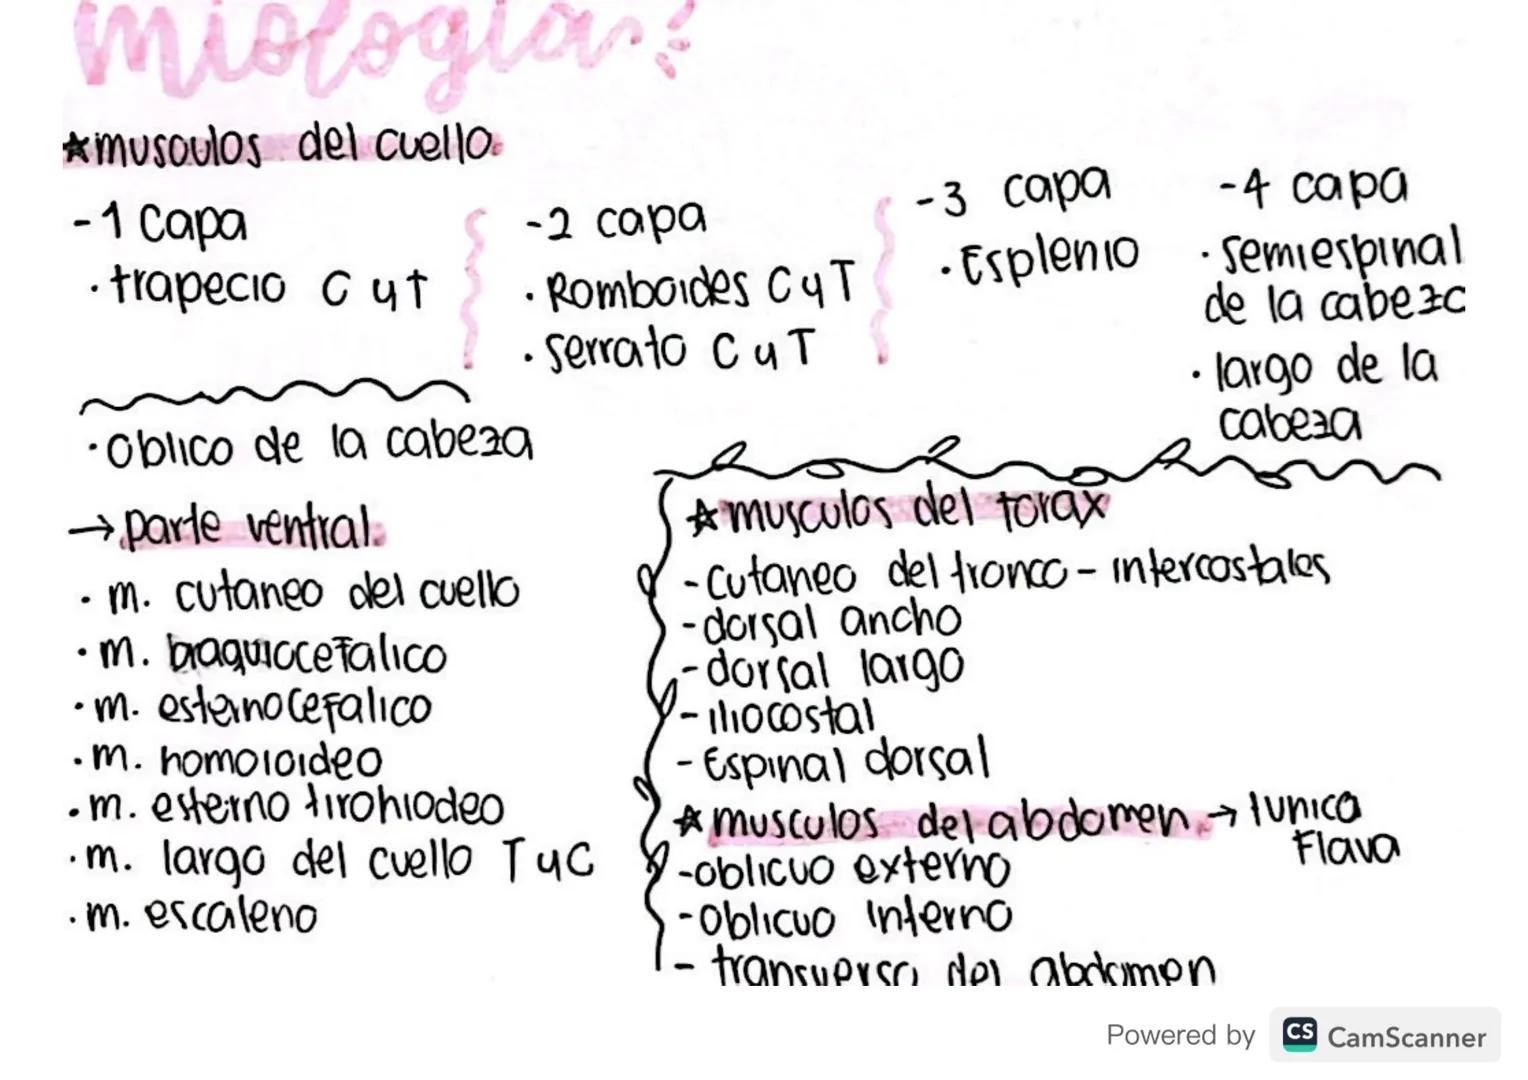 miología
★musculos del cuello.
-1 Capa
·trapecio C y t
-2 capa
·Romboides C y T
·serrato C y T
-3 capa
·Esplenio
-4 capa
·semiespinal
de la cabeza
·largo de la
cabeza
·oblico de la cabeza
→parte ventral.
·m. cutaneo del cuello
·m. braquiocefalico
·m. esternocefalico
·m. homoioideo
·m. esterno tirohiodeo
·m. largo del cuello T y C
·m. escaleno
★musculos del torax
-cutaneo del tronco - intercostales
-dorsal ancho
-dorsal largo
-iliocostal
-Espinal dorsal
★musculos del abdomen → tunica
Flava
-oblicuo externo
-oblicuo Interno
-transverso del abdomen
Powered by CS CamScanner